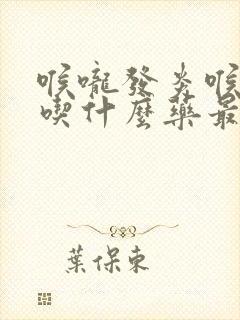 喉嚨發炎喉
喫什麼藥最
葉保東